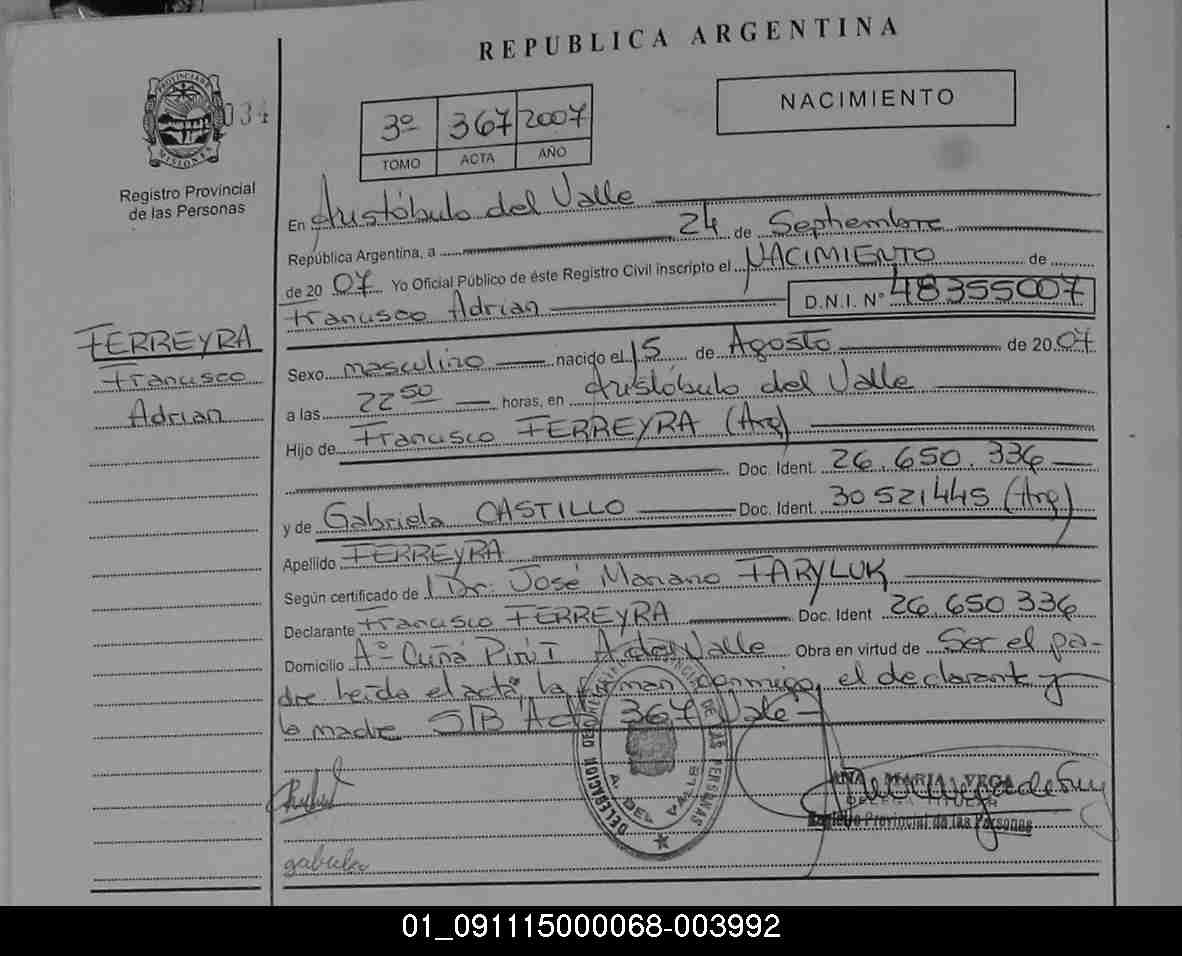 REPUBLICA ARGENTINA
PROVINCIA DE MISIONES
034
Registro Provincial
de las Personas
3º 367 2007
TOMO ACTA AÑO
NACIMIENTO
En Aristóbulo del Valle
República Argentina, a 24 de Septiembre
de 2007 Yo Oficial Público de éste Registro Civil inscripto el NACIMIENTO de
Francisco Adrian D.N.I. Nº 48355007
FERREYRA
Francisco
Adrian
Sexo masculino nacido el 15 de Agosto de 2007
a las 22 50 horas, en Aristóbulo del Valle
Hijo de Francisco FERREYRA (Arg)
Doc. Ident. 26.650.336
y de Gabriela CASTILLO Doc. Ident. 30521445 (Arg)
Apellido FERREYRA
Según certificado de Dr. José Mariano TARYLUK
Declarante Francisco FERREYRA Doc. Ident 26.650.336
Domicilio Aº Cuña Pirú I A. del Valle Obra en virtud de Ser el pa-
dre leída el acta, la firman conmigo, el declarante y
la madre S/B Acta 367 Vale-
DELEGACION A. DEL VALLE
ANA MARIA VEGA
DELEGADA TITULAR
Registro Provincial de las Personas
01_091115000068-003992